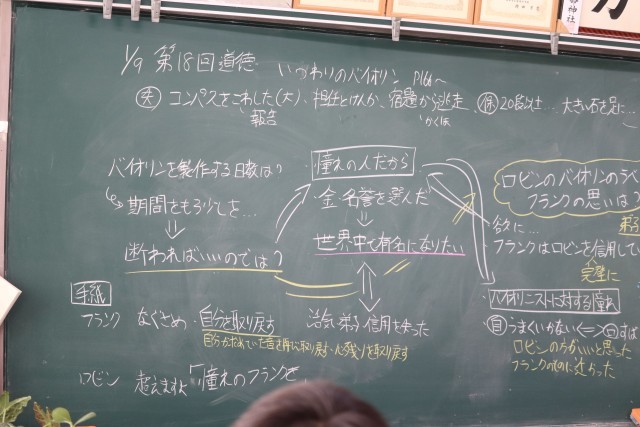 1/9 第18回道徳 いつわりのバイオリン P166～
失 コンパスをこわした(大)、担任とけんか、宿題から逃走
報告 かくほ
保 20段以上… 大きい石を足に…
バイオリンを製作する日数は?
期間をもう少しを…
断わればいいのでは?
憧れの人だから
金・名誉を選んだ
世界中で有名になりたい
ロビンのバイオリンのラベ
フランクの思いは?
弟子
欲に…
フランクはロビンを信用してい
完璧に
バイオリニストに対する憧れ
手紙
フランク なぐさめ・自分を取り戻す
治気・弟子・信用を失った
自 うまくいかない
ロビンの方がいいと思った
ロビン 超えますよ「憧れのフランクを
神社